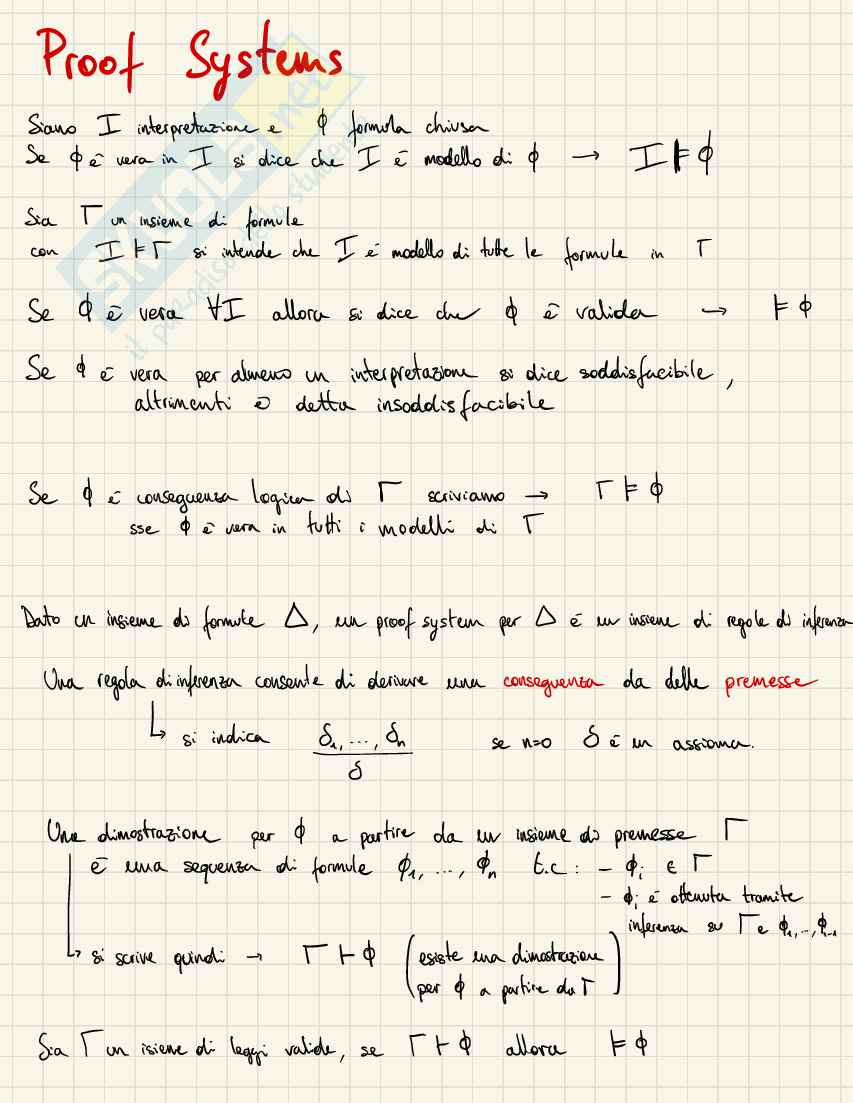 Proof Systems
Siano I interpretazione e ϕ formula chiusa
Se ϕ è vera in I si dice che I è modello di ϕ → I ⊨ ϕ
Sia Γ un insieme di formule
con I ⊨ Γ si intende che I è modello di tutte le formule in Γ
Se ϕ è vera ∀I allora si dice che ϕ è valida → ⊨ ϕ
Se ϕ è vera per almeno un interpretazione si dice soddisfacibile,
altrimenti è detta insoddisfacibile
Se ϕ è conseguenza logica di Γ scriviamo → Γ ⊨ ϕ
sse ϕ è vera in tutti i modelli di Γ
Dato un insieme di formule Δ, un proof system per Δ è un insieme di regole di inferenza
Una regola di inferenza consente di derivare una conseguenza da delle premesse
↳ si indica δ₁, ..., δₙ / δ se n=0 δ è un assioma.
Una dimostrazione per ϕ a partire da un insieme di premesse Γ
è una sequenza di formule ϕ₁, ..., ϕₙ t.c: - ϕᵢ ∈ Γ
- ϕᵢ è ottenuta tramite
inferenza su Γ e ϕ₁,...,ϕᵢ₋₁
↳ si scrive quindi → Γ ⊢ ϕ (esiste una dimostrazione
per ϕ a partire da Γ)
Sia Γ un isieme di leggi valide, se Γ ⊢ ϕ allora ⊨ ϕ
SKUOLA.net
il paradiso dello studente